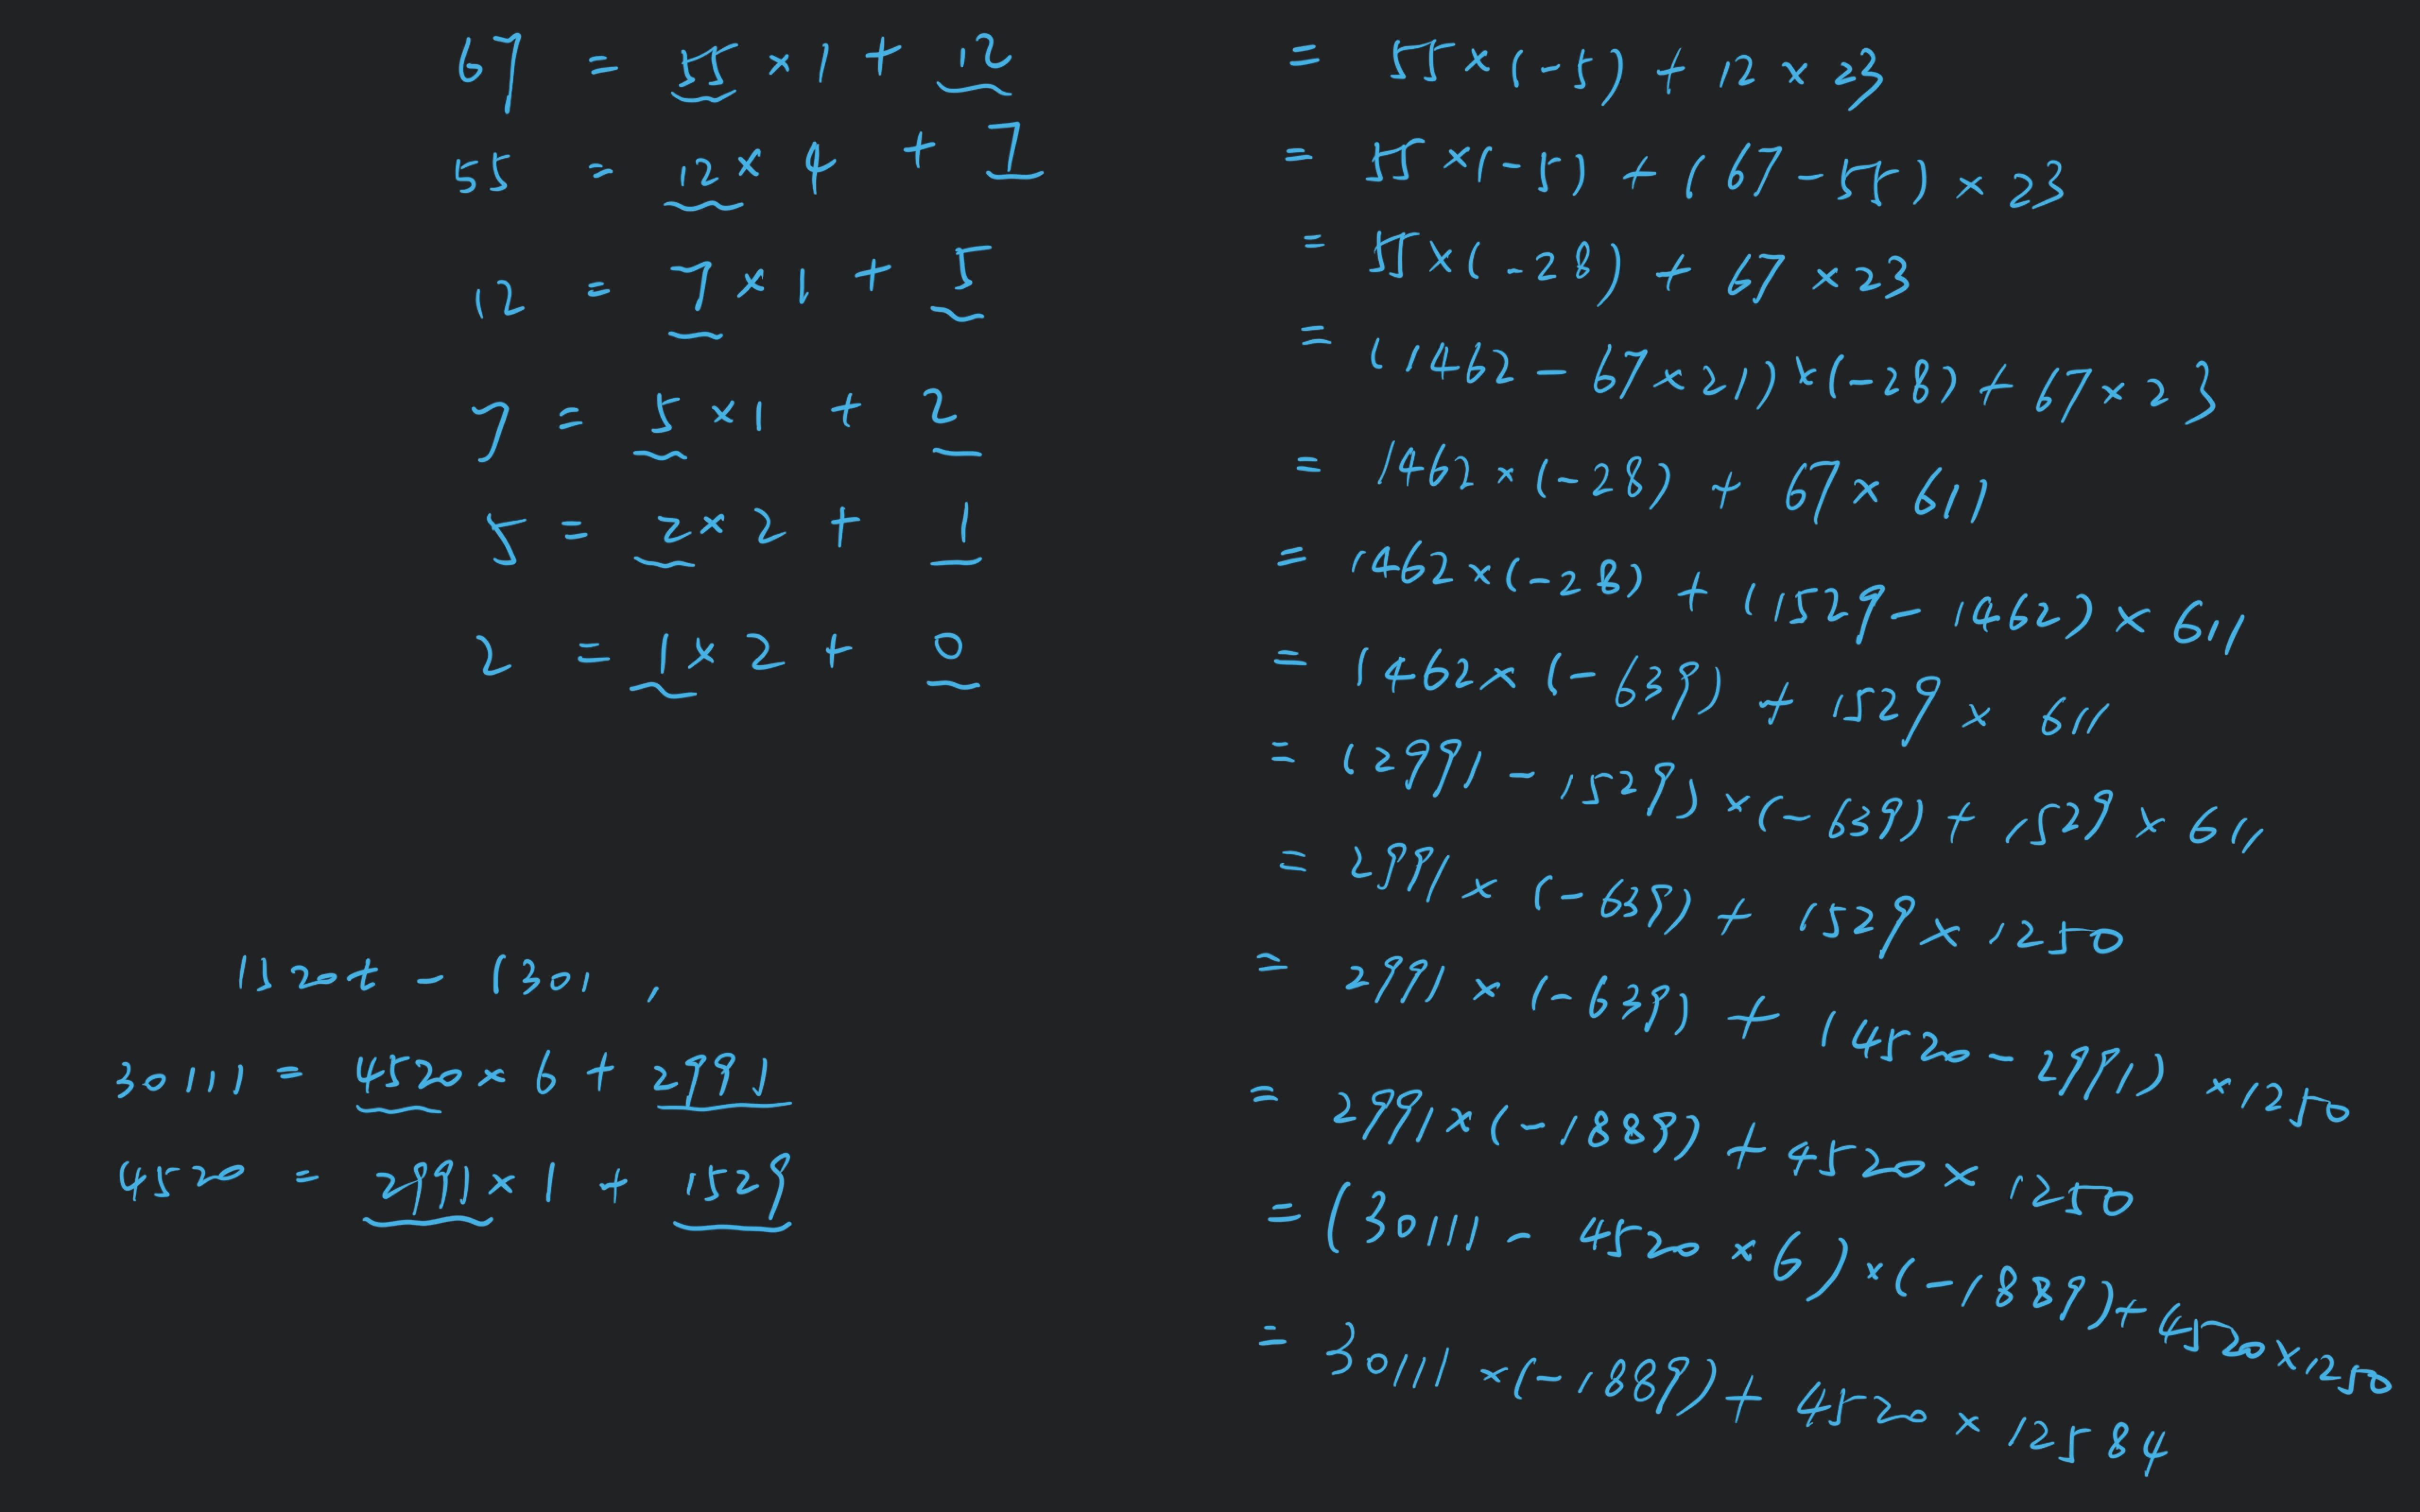 67 = 55 × 1 + 12
55 = 12 × 4 + 7
12 = 7 × 1 + 5
7 = 5 × 1 + 2
5 = 2 × 2 + 1
2 = 1 × 2 + 0
30111 = 4520 × 6 + 2991
4520 = 2991 × 1 + 1529
= 55 × (-5) + 12 × 23
= 55 × (-5) + (67 - 55) × 23
= 55 × (-28) + 67 × 23
= (1462 - 67 × 21) × (-28) + 67 × 23
= 1462 × (-28) + 67 × 611
= 1462 × (-28) + (1529 - 1462) × 611
= 1462 × (-639) + 1529 × 611
= (2991 - 1529) × (-639) + 1529 × 611
= 2991 × (-639) + 1529 × 1250
= 2991 × (-639) + (4520 - 2991) × 1250
= 2991 × (-1889) + 4520 × 1250
= (30111 - 4520 × 6) × (-1889) + 4520 × 1250
= 30111 × (-1889) + 4520 × 12584